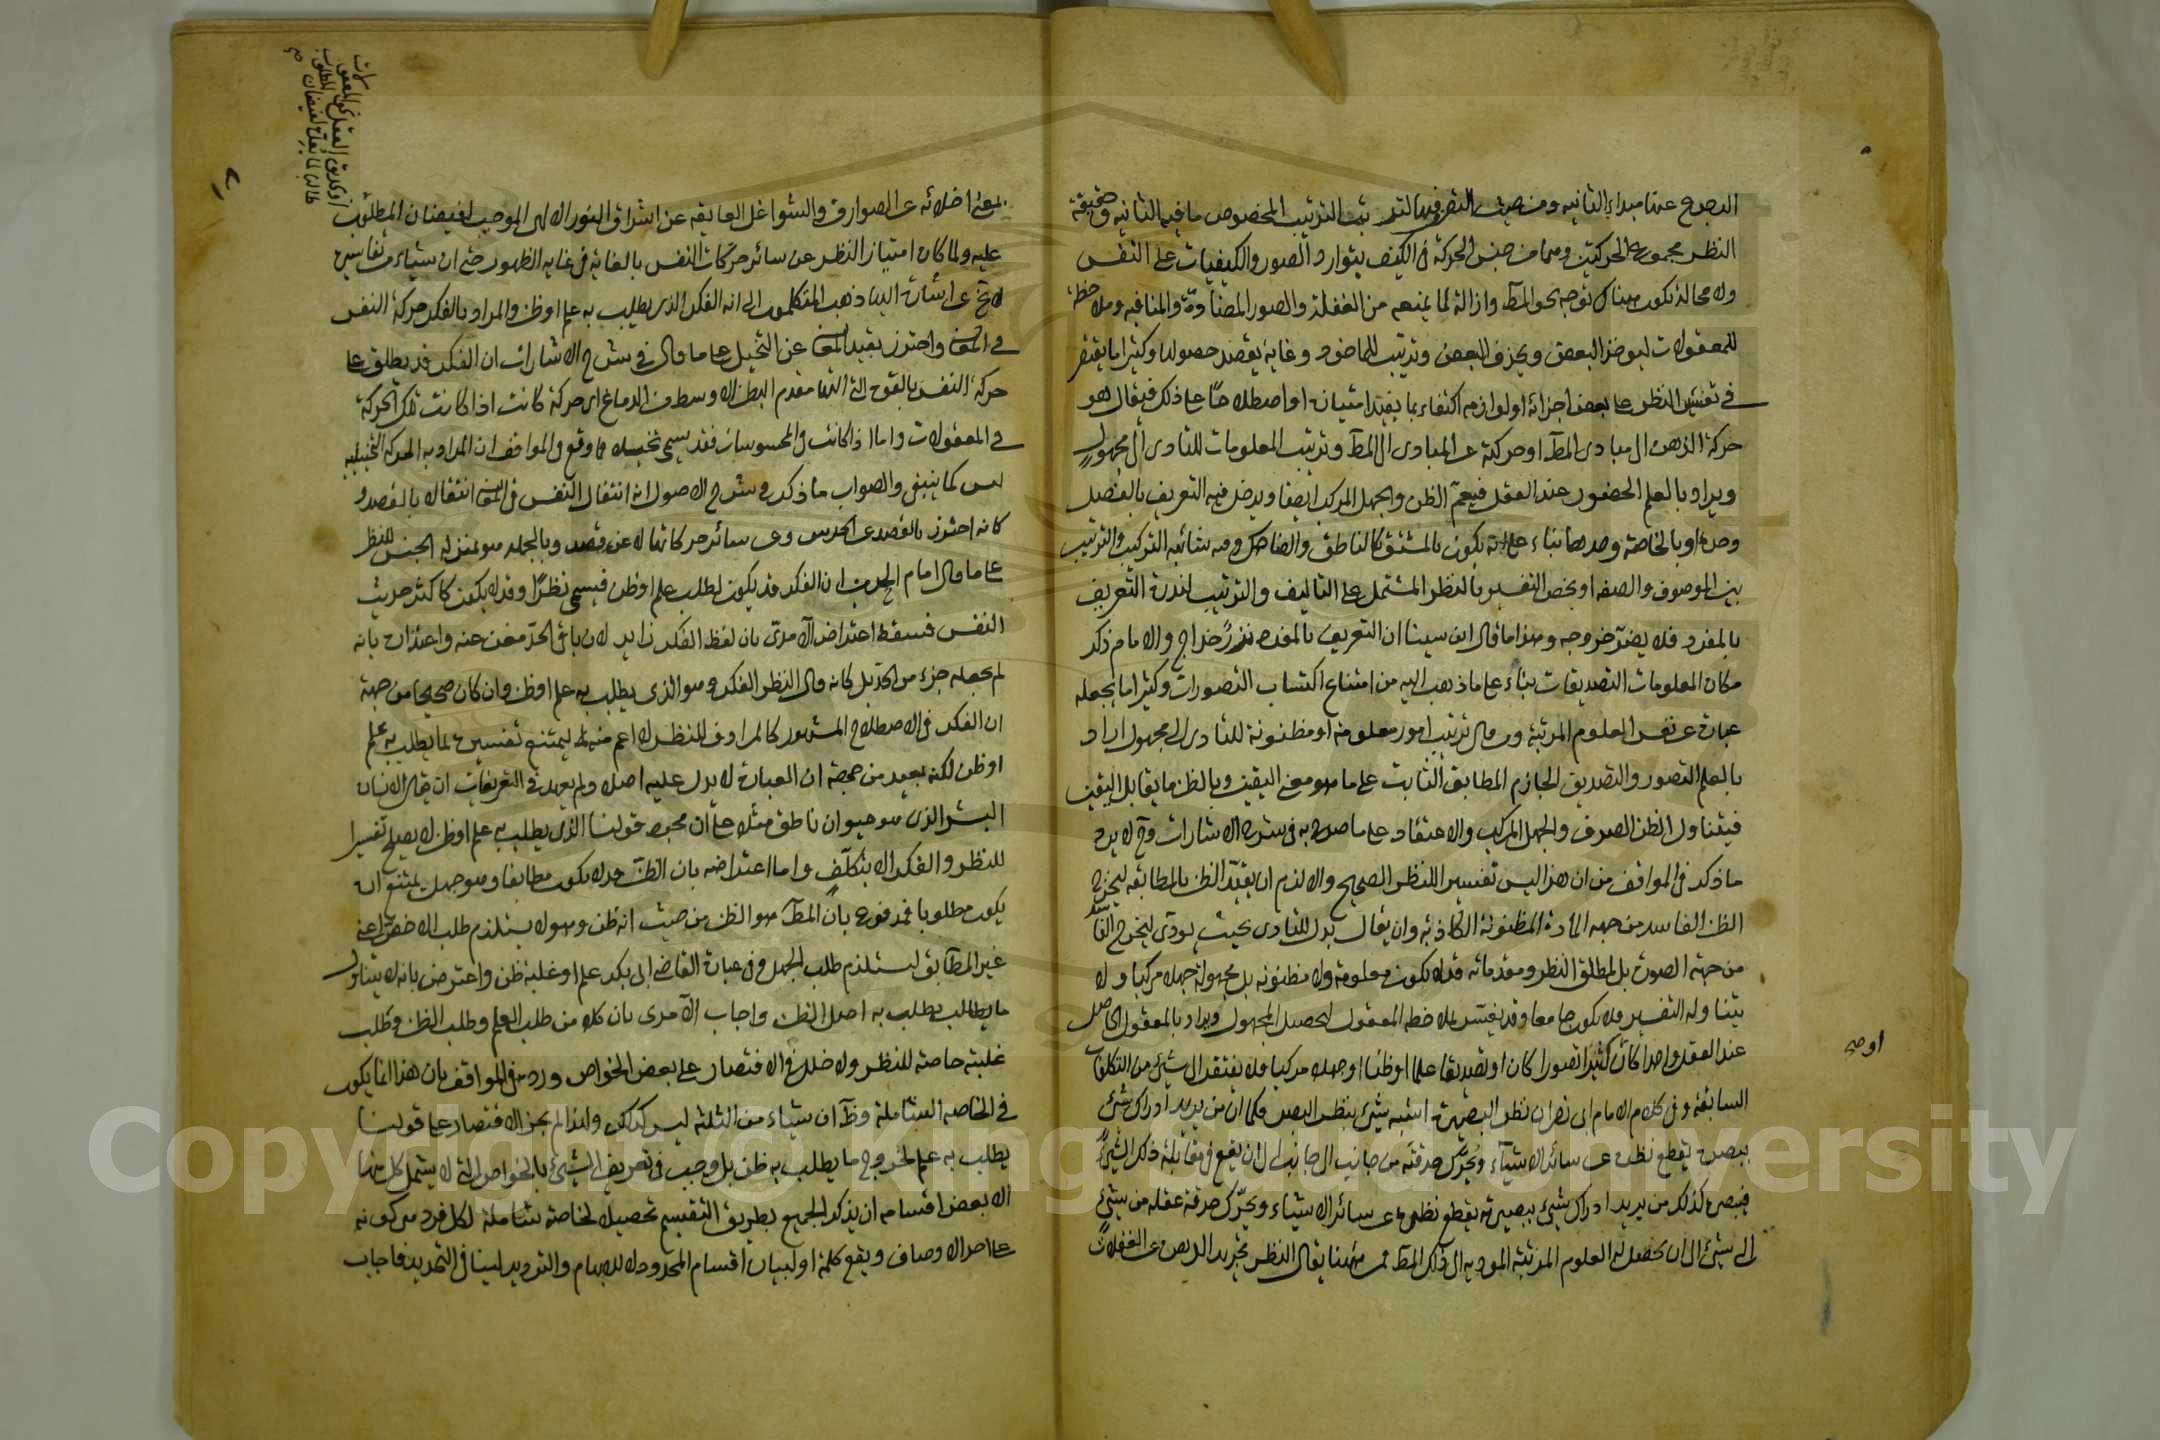 الرجوع عنها مبدا الثانيه ومن حيث التصرف فيها لترتب الترتيب المخصوص ما فيه الثانيه وحقيقة
النظر مجموع الحركتين وهما من جنس الحركة في الكيف بتوارد الصور والكيفيات على النفس
ولا محالة يكون هناك توجه نحو المط وازالة لما يمنعه من الغفلة والصور المضادة والمنافيه وملاحظة
للمعقولات ليوخذ البعض ويحذف البعض وترتيب للماخوذ وغاية يقصد حصولها وكثيرا ما يقتصر
في تفسير النظر على بعض اجزائه او لوازمه اكتفاء بما يفيد امتيازه او اصطلاحا على ذلك فيقال هو
حركة الذهن الى مبادى المط او حركته عن المبادى الى المط وترتيب المعلومات للتادى الى مجهول
ويراد بالعلم الحضور عند العقل فيعم الظن والجهل المركب ايضا ويدخل فيه التعريف بالفصل
وحده او بالخاصة وحدها بناء على انه يكون بالمشتق كالناطق والضاحك وفيه شائبة التركيب والترتيب
بين الموصوف والصفه او يخص التفسير بالنظر المشتمل على التاليف والترتيب لندرة التعريف
بالمفرد فلا يضر خروجه وهذا ما قال ابن سينا ان التعريف بالمفرد نزر خداج والامام ذكر
مكان المعلومات التصديقات بناء على ما ذهب اليه من امتناع اكتساب التصورات وكثيرا ما يجعله
عبارة عن نفس العلوم المرتبة ومن قال ترتيب امور معلومة او مظنونة للتادى الى مجهول اراد
بالعلم التصور والتصديق الجازم المطابق الثابت على ما هو معنى اليقين وبالظن ما يقابل اليقين
فيتناول الظن الصرف والجهل المركب والاعتقاد على ما صرح به في شرح الاشارات وح لا يرد
ما ذكر في المواقف من ان هذا ليس تفسيرا للنظر الصحيح والا لزم ان يقيد الظن بالمطابقه ليخرج
الظن الفاسد من جهه المادة المظنونة الكاذبه وان يقال بدل للتادى بحيث يودى ليخرج الفاسد
من جهة الصورة بل لمطلق النظر ومقدماته قد لا يكون معلومة ولا مظنونه بل مجهولة جهلا مركبا ولا
يتناوله التفسير فلا يكون جامعا وقد يفسر بملاحظه المعقول لتحصيل المجهول ويراد بالمعقول الحاصل
عند العقل واحدا كان او كثيرا تصورا كان او تصديقا علما او ظنا او جهلا مركبا فلا يفتقر الى شيئ من التكلفات
السابقة وفي كلام الامام ان نظر البصيرة اشبه شيئ بنظر البصر فكما ان من يريد ادراك شيئ
ببصره يقطع نظره عن سائر الاشيآء ويحرك حدقته من جانب الى جانب الى ان يقع في مقابلة ذلك الشيئ
فيبصره كذلك من يريد ادراك شيئ ببصيرته يقطع نظره عن سائر الاشياء ويحرك حدقة عقله من شيئ
الى شيئ الى ان يحصل له العلوم المرتبة المودية الى ذلك المط ومن ههنا يقال النظر تجريد الذهن عن الغفلات
او صح
بمعنى اخلائه عن الصوارف والشواغل العايقه عن اشراق النور الالهى الموجب لفيضان المطلوب
عليه ولما كان امتياز النظر عن سائر حركات النفس بالغاية في غايه الظهور حتى ان شيئا من تفاسيره
لا يخ عن اشارة اليها ذهب المتكلمون الى انه الفكر الذي يطلب به علم او ظن والمراد بالفكر حركة النفس
في المعانى واحترز بقيد المعانى عن التخيل على ما قال في شرح الاشارات ان الفكر قد يطلق على
حركة النفس بالقوة التى التها مقدم البطن الاوسط من الدماغ اى حركة كانت اذا كانت تلك الحركة
في المعقولات واما اذا كانت في المحسوسات فقد يسمى تخيلا فما وقع في المواقف ان المراد به الحركة التخيليه
ليس كما ينبغى والصواب ما ذكر في شرح الاصول انه انتقال النفس في المعانى انتقالا بالقصد و
كانه احترز بالقصد عن الحدس وعن سائر حركاتها لا عن قصد وبالجملة هو بمنزلة الجنس للنظر
على ما قال امام الحرمين ان الفكر قد يكون لطلب علم او ظن فيسمى نظرا وقد لا يكون كاكثر حديث
النفس فسقط اعتراض الآمدى بان لفظ الفكر زايد لان باقى الحد مغن عنه واعتذاره بانه
لم يجعله جزء من الحد بل كانه قال النظر الفكر وهو الذى يطلب به علم او ظن وان كان صحيحا من جهة
ان الفكر في الاصطلاح المشهور كالمرادف للنظر لا اعم منه ليمتنع تفسيره بما يطلب به علم
او ظن لكنه بعيد من جهة ان العبارة لا يدل عليه اصلا ولم يعهد في التعريفات ان يقال الانسان
البشر الذى هو حيوان ناطق مثلا على ان مجرد قولنا الذى يطلب به علم او ظن لا يصلح تفسيرا
للنظر والفكر الا بتكلف واما اعتراضه بان الظن قد لا يكون مطابقا وهو جهل يمتنع ان
يكون مطلوبا فمدفوع بان المط هو الظن من حيث انه ظن وهو لا يستلزم طلب الاخص اعنى
غير المطابق ليستلزم طلب الجهل وفي عبارة القاضى ابى بكر علم او غلبة ظن واعترض بانه لا يتناول
ما يطلب به اصل الظن واجاب الآمدى بان كلا من طلب العلم وطلب الظن وطلب
غلبته خاصة للنظر ولا خلل في الاقتصار على بعض الخواص ورده في المواقف بان هذا انما يكون
في الخاصه الشاملة وظ ان شيئا من الثلثة ليس كذلك ولذا لم يجز الاقتصار على قولنا
يطلب به علم لخروج ما يطلب به ظن بل وجب في تعريف الشيئ بالخواص التى لا يشتمل كل منها
الا بعض اقسامه ان يذكر الجميع بطريق التقسيم تحصيلا لخاصة شاملة لكل فرد هى كونه
على احد الاوصاف ويقع كلمة او لبيان اقسام المحدود لا للابهام والترديد لينافى التحديد فاجاب
Copyright © King Saud University